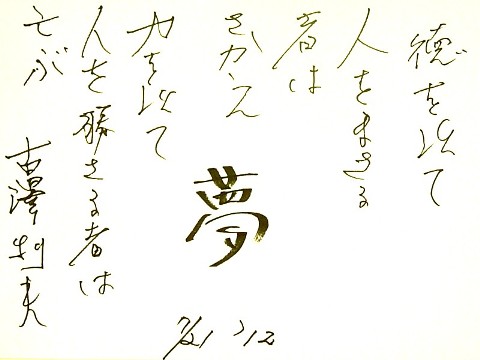 徳を以て
人をまさる
者は
さかえ
力を以て
人を勝さる者は
亡ぶ
古澤利夫
夢
7/21 '12